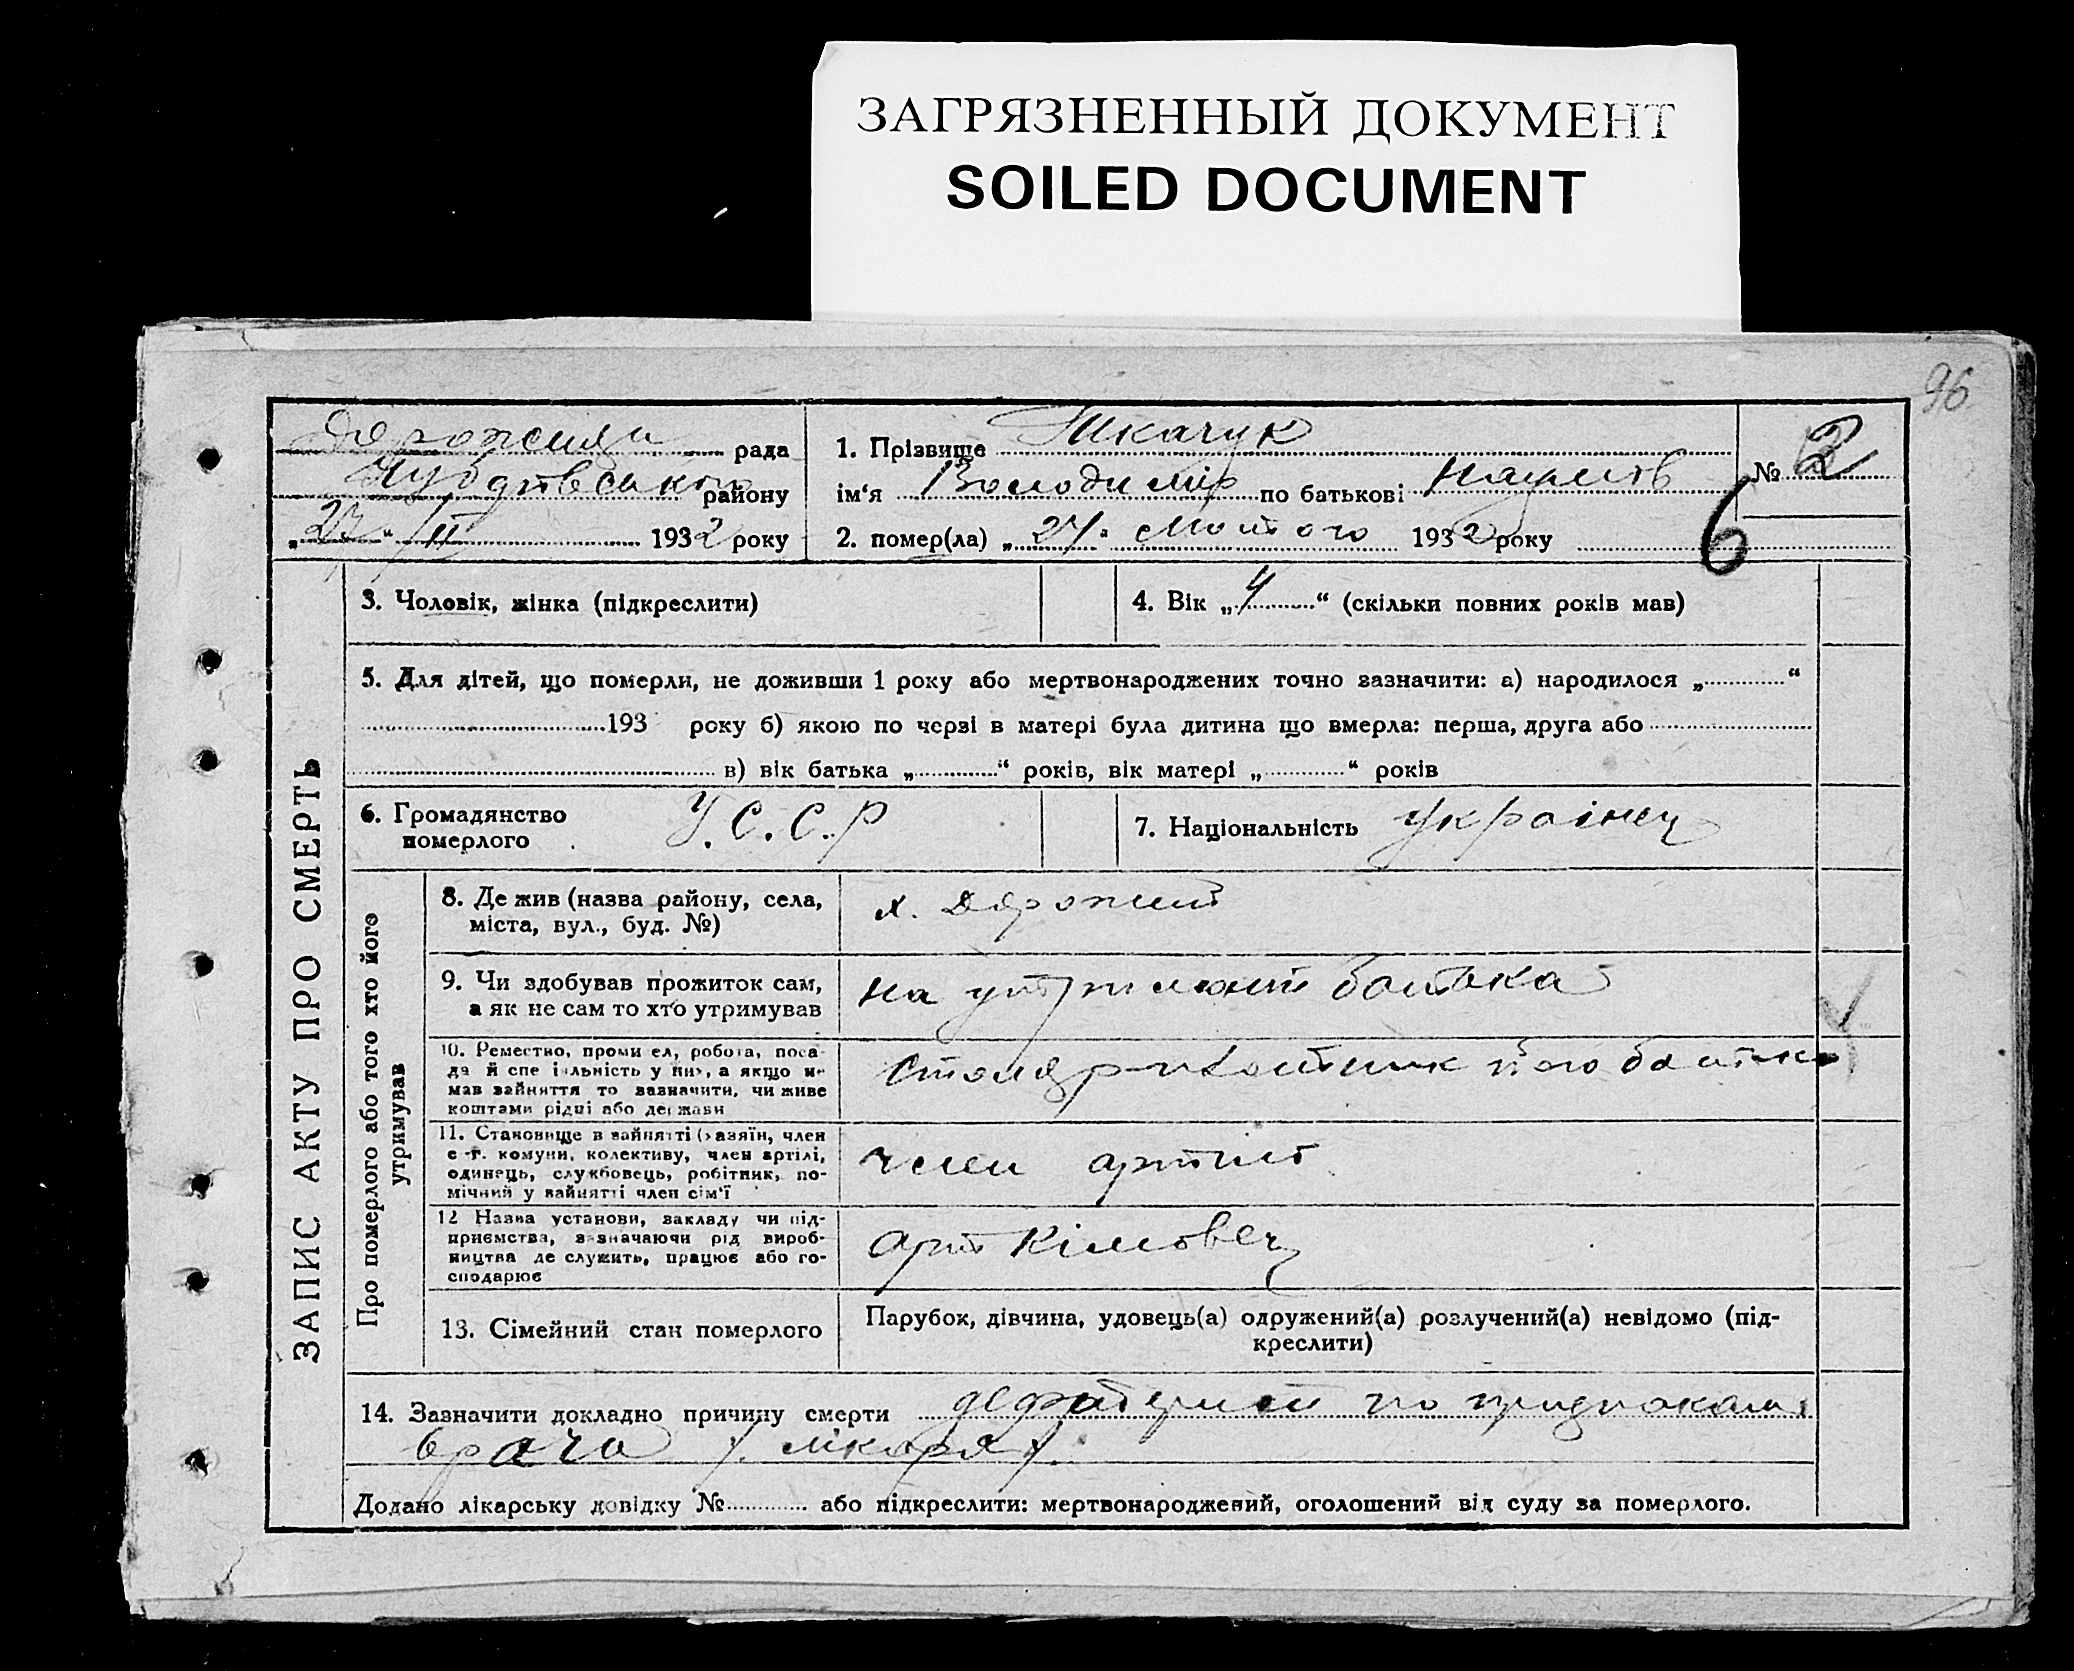 ЗАГРЯЗНЕННЫЙ ДОКУМЕНТ
SOILED DOCUMENT
96
рада
району
„27“ II 1932 року
1. Прізвище Ткачук
ім‘я Володимір по батькові Наумів
2. помер(ла) „27“ Лютого 1932 року
№ 2
6
ЗАПИС АКТУ ПРО СМЕРТЬ
3. Чоловік, жінка (підкреслити)
4. Вік „4“ (скільки повних років мав)
5. Для дітей, що померли, не доживши 1 року або мертвонароджених точно зазначити: а) народилося „ “
193 року б) якою по черзі в матері була дитина що вмерла: перша, друга або
в) вік батька „ “ років, вік матері „ “ років
6. Громадянство
померлого
У.С.С.Р
7. Національність Украінец
Про померлого або того хто його
утримував
8. Де жив (назва району, села,
міста, вул., буд. №)
х.
9. Чи здобував прожиток сам,
а як не сам то хто утримував
на батька
10. Ремество, промисел, робота, поса-
да й спеціальність у них, а якщо не
мав зайняття то зазначити, чи живе
коштами рідні або держави
Столяр його батько
11. Становище в зайнятті (хазяїн, член
с.-г. комуни, колективу, член артілі,
одинець, службовець, робітник, по-
мічний у зайнятті член сім‘ї
член артілі
12 Назва установи, закладу чи під-
приємства, зазначаючи рід вироб-
ництва де служить, працює або го-
сподарює
арт Кімовец
13. Сімейний стан померлого
Парубок, дівчина, удовець(а) одружений(а) розлучений(а) невідомо (під-
креслити)
14. Зазначити докладно причину смерти по признакам
врача /лікаря/.
Додано лікарську довідку № або підкреслити: мертвонароджений, оголошений від суду за померлого.